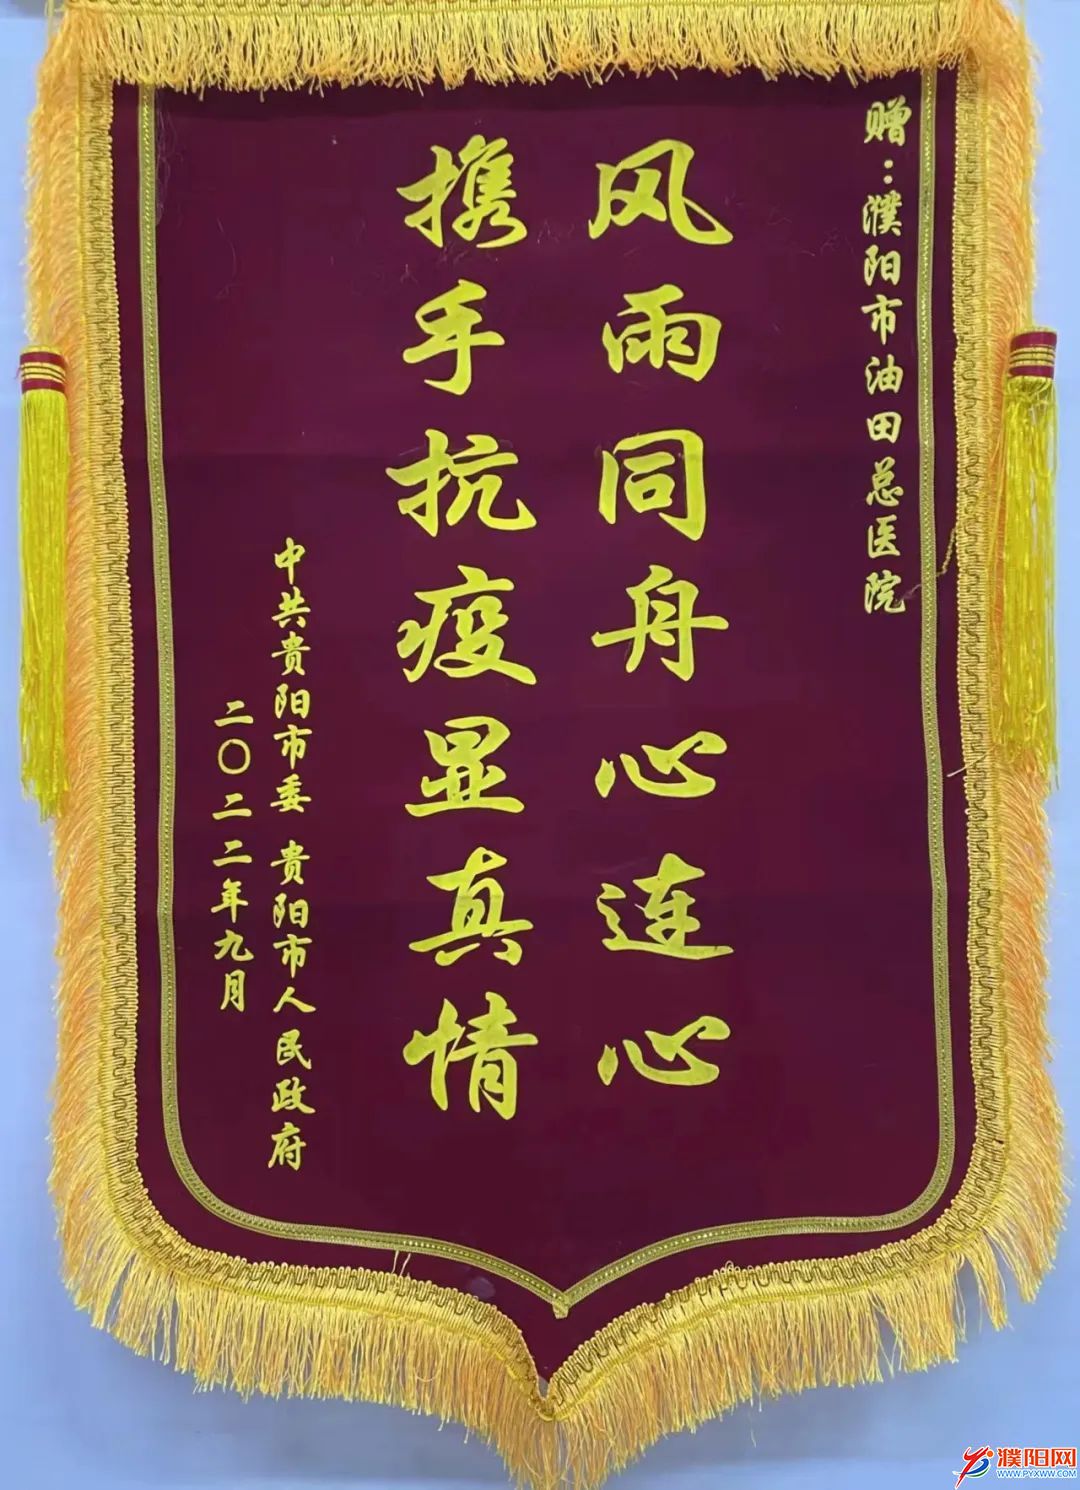 赠：濮阳市油田总医院
风雨同舟心连心
携手抗疫显真情
中共贵阳市委 贵阳市人民政府
二〇二二年九月
濮阳网
WWW.PYXWW.COM